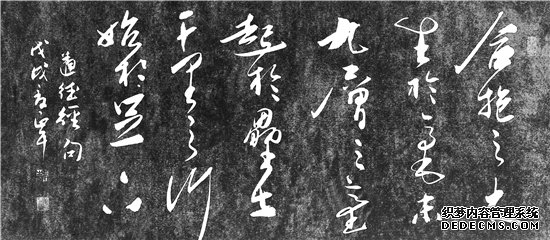 合抱之木
生於毫末
九層之臺
起於壘土
千里之行
始於足下
道德經句
戊戌
织梦内容管理系统
DEDECMS.COM